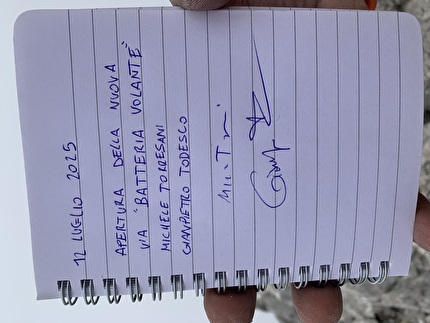 12 LUGLIO 2025
APERTURA DELLA NUOVA
VIA "BATTERIA VOLANTE"
MICHELE TORRESANI
GIANPIETRO TODESCO